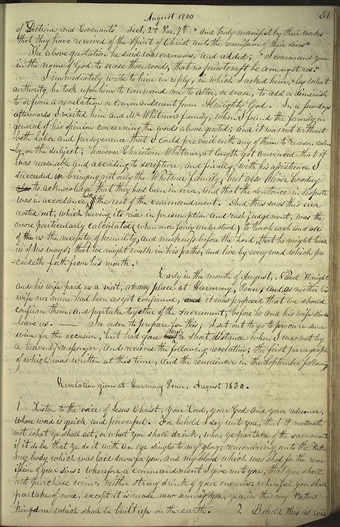 August 1830 51
of Doctrine and Covenants" Sect. 2d Par. 7th "and truly manifest by their works
that they have received of the Spirit of Christ unto the remission of their sins"
The above quotation he said was erroneous, and added; "I command you
in the name of God to erase those words, that no priestcraft be amongst us."
I immediately wrote to him in reply, in which I asked him, by what
authority he took upon him to command me to alter, or erase, to add or diminish
to or from a revelation or commandment from Almighty God. In a few days
afterwards I visited him and Mr Whitmer's family, when I found the family in
general of his opinion concerning the words above quoted; and it was not without
both labor and perseverance that I could prevail with any of them to reason calmly
on the subject; however Christian Whitmer at length got convinced that it
was reasonable and according to scripture, and finally, with his assistance I
succeeded in bringing not only the Whitmer family, but also Oliver Cowdery
to acknowledge that they had been in error, and that the sentence in dispute
was in accordance with the rest of the commandment. And thus was this error
rooted out, which having its rise in presumption and rash judgement, was the
more particularly calculated (when once fairly understood) to teach each and all
of us the necessity of humility, and meekness before the Lord, that he might teach
us of his ways; that we might walk in his paths, and live by every word which pro-
ceedeth forth from his mouth.
Early in the month of August, Newel Knight
and his wife paid us a visit, at my place at Harmony, Penn; and as neither his
wife nor mine had been as yet confirmed, it was proposed that we should
confirm them, and partake together of the sacrament, before he and his wife should
leave us. In order to prepare for this; I set out to go to procure some
wine for the occasion, but had gone only a short distance when I was met by
a heavenly messenger, and received the following revelation; the first paragraph
of which was written at this time, and the remainder in the September following
Revelation given at Harmony Penn, August 1830.
1 Listen to the voice of Jesus Christ, your Lord, your God and your redeemer,
whose word is quick and powerful. For behold I say unto you, that it mattereth
not what ye shall eat, or what you shall drink, when ye partake of the sacrament
if it so be that ye do it with an eye single to my glory; remembering unto the Father
my body which was laid down for you, and my blood which was shed for the remis-
sion of your sins: wherefore a commandment I give unto you, that you shall
not purchase wine, neither strong drink of your enemies: wherefore you shall
partake of none, except it is made new among you, yea in this my Father's
kingdom which shall be built up on the earth. 2 Behold this is wis